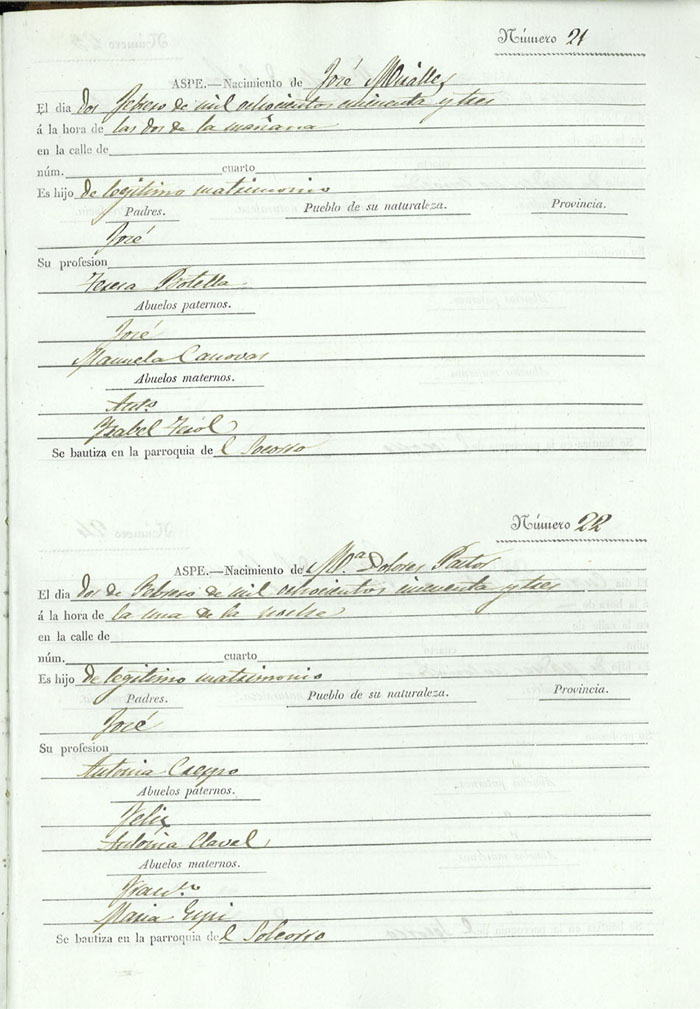 Número 21
ASPE.—Nacimiento de José Miralles
El dia dos febrero de mil ochocientos cincuenta y tres
á la hora de las dos de la mañana
en la calle de
núm. cuarto
Es hijo de legitimo matrimonio
Padres. Pueblo de su naturaleza. Provincia.
José
Su profesion
Teresa Botella
Abuelos paternos.
José
Manuela Canovas
Abuelos maternos.
Anto.
Ysabel
Se bautiza en la parroquia de l Socorro
Número 22
ASPE.—Nacimiento de Mª Dolores Pastor
El dia dos de Febrero de mil ochocientos cincuenta y tres
á la hora de la una de la noche
en la calle de
núm. cuarto
Es hijo de legitimo matrimonio
Padres. Pueblo de su naturaleza. Provincia.
José
Su profesion
Antonia
Abuelos paternos.
Felix
Antonia Clavel
Abuelos maternos.
Franco.
Maria
Se bautiza en la parroquia de l Socorro